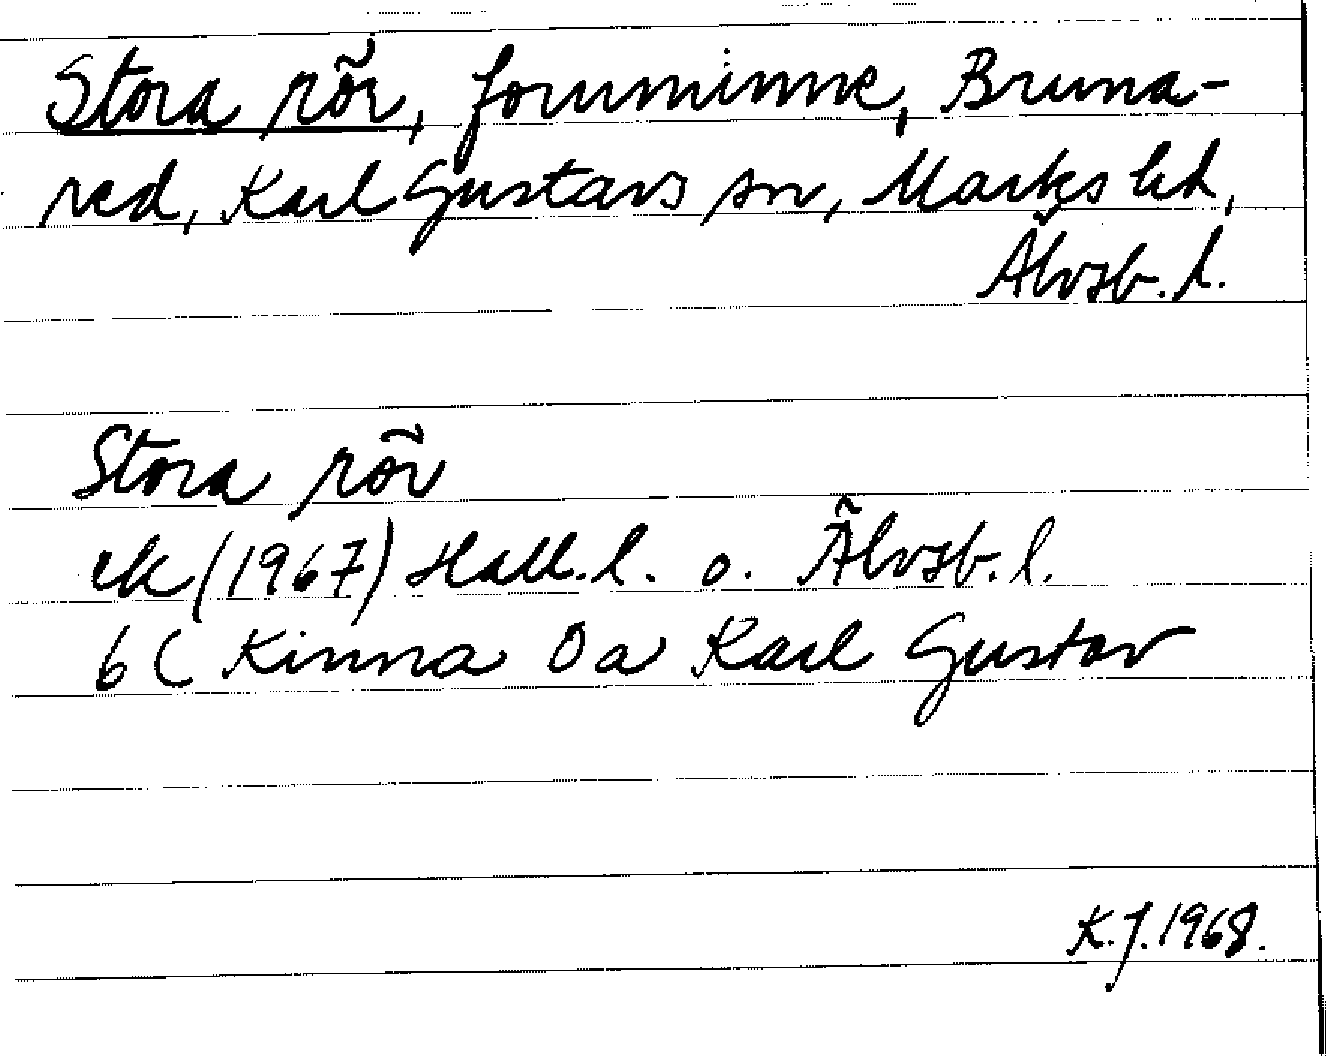 Stora rör, fornminne, Bruna-
red, Karl Gustavs sn, Marks hd,
Älvsb. l.
Stora rör
ek (1967) Hall. l. o. Älvsb. l.
6C Kinna 0a Karl Gustav
K.J. 1968.